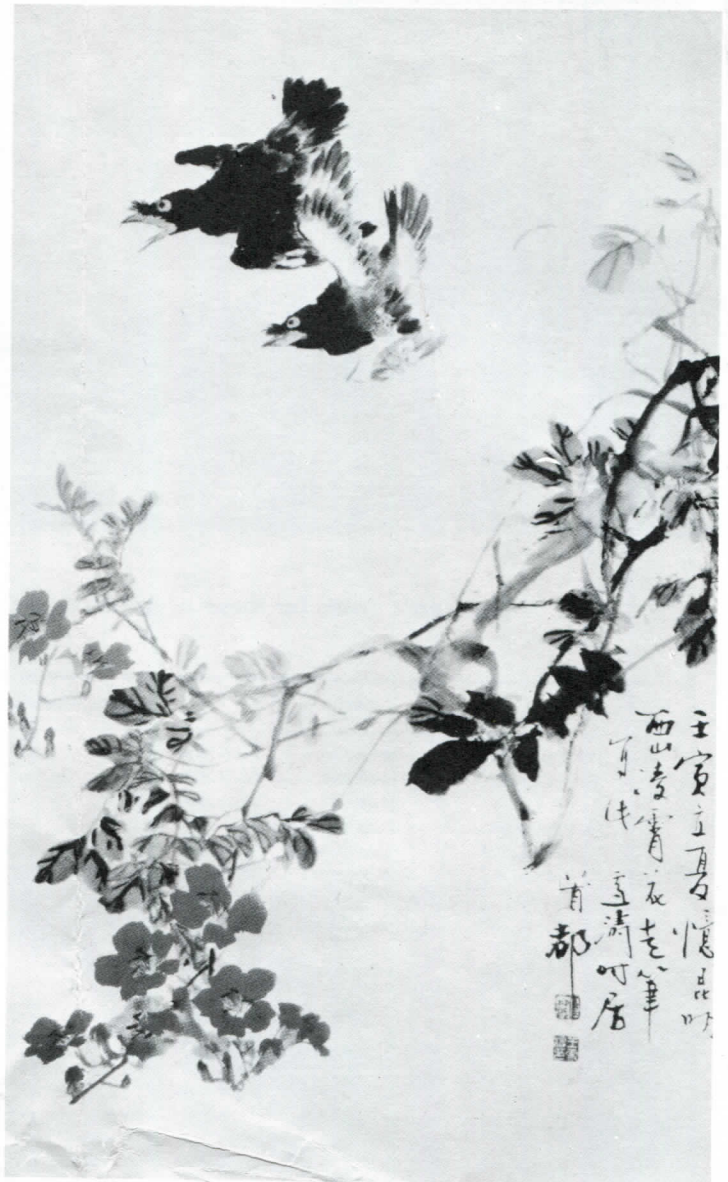 壬寅立夏憶昆明
西山凌霄花走筆
寫此 雪濤時居
首都